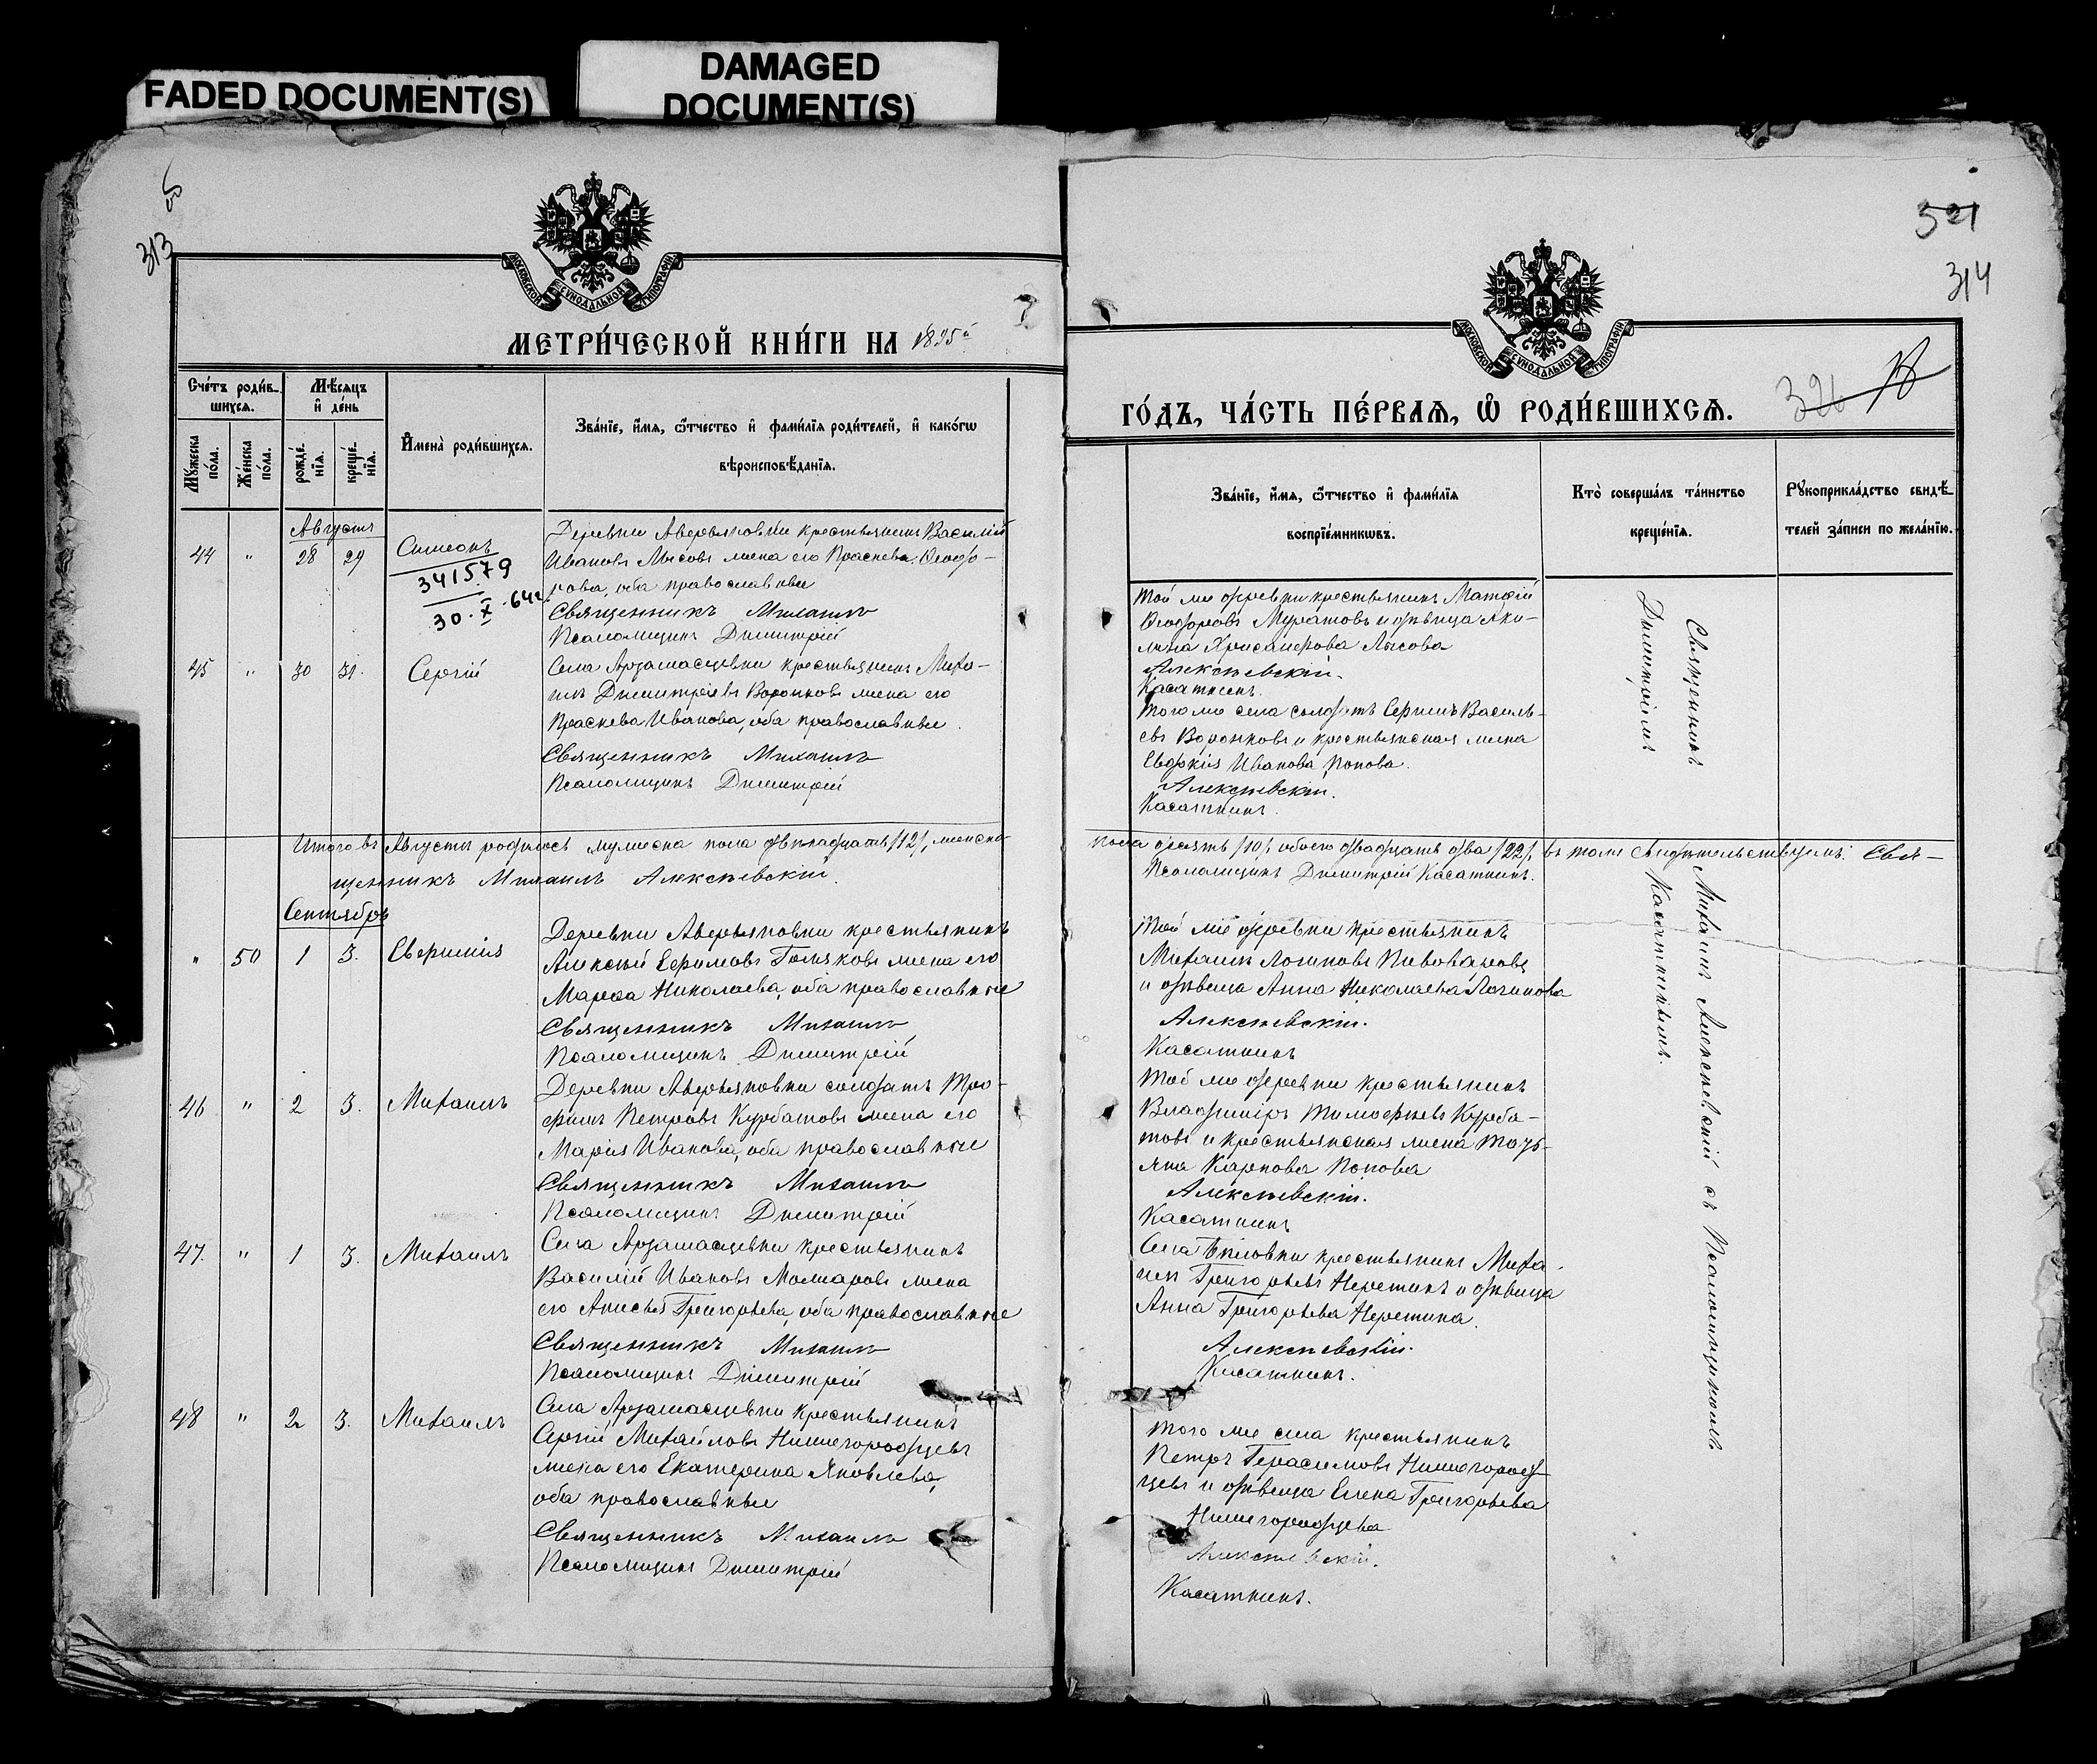 FADED DOCUMENT(S)
DAMAGED
DOCUMENT(S)
313
МОСКОВСКОЙ СѴНОДАЛЬНОЙ ТИПОГРАФІИ
МЕТРИ́ЧЕСКОЙ КНИ́ГИ НА 1895й
Сче́тъ роди́в-
шихся.
Мѣ́сяцъ
и҆ де́нь
Мꙋ́жеска
по́ла.
Же́нска
по́ла.
рожде́-
нїя.
креще́-
нїя.
И҆мена̀ роди́вшихся.
Зва́нїе, и҆́мя, ѻ҆́тчество и҆ фами́лїя роди́телей, и҆ како́гѡ
вѣроисповѣ́данїя.
Августъ
44 " 28 29 Симеонъ
341579
30.X.64г.
Деревни Аверьяновки крестьянинъ Василій
Ивановъ Лысовъ жена его Праскева Ѳеодо-
рова, оба православные
Священникъ Михаилъ
Псаломщикъ Димитрій
45 " 30 31. Сергій
Села Арзамасцевки крестьянинъ Миха-
илъ Димитріевъ Воронковъ жена его
Праскева Иванова, оба православные.
Священникъ Михаилъ
Псаломщикъ Димитрій
Итого въ Августѣ родилось мужеска пола двѣнадцать /12/, женска
щенникъ Михаилъ Алексѣевскій.
Сентябрь
" 50 1 3. Евѳимія
Деревни Аверьяновки крестьянинъ
Алексѣй Ефимовъ Голяковъ жена его
Марѳа Николаева, оба православные
Священникъ Михаилъ
Псаломщикъ Димитрій
46 " 2 3. Михаилъ
Деревни Аверьяновки солдатъ Тро-
фимъ Петровъ Курбатовъ жена его
Марія Иванова, оба православные
Священникъ Михаилъ
Псаломщикъ Димитрій
47. " 1 3. Михаилъ
Села Арзамасцевки крестьянинъ
Василій Ивановъ
его Анисья Григорьева, оба православные
Священникъ Михаилъ
Псаломщикъ Димитрій
48 " 2 3. Михаилъ
Села Арзамасцевки крестьянинъ
Сергій Михайловъ Нижегородцевъ
жена его Екатерина Яковлева,
оба православные
Священникъ Михаилъ
Псаломщикъ Димитрій
521
314
МОСКОВСКОЙ СѴНОДАЛЬНОЙ ТИПОГРАФІИ
ГО́ДЪ, ЧА́СТЬ ПЕ́РВАЯ, Ѡ҆ РОДИ́ВШИХСЯ.
326
Зва́нїе, и҆́мя, ѻ҆́тчество и҆ фами́лїя
воспрїе́мникѡвъ.
Кто̀ соверша́лъ та́инство
креще́нїя.
Рꙋкоприкла́дство свидѣ́-
телей за́писи по жела́нїю.
Той же деревни крестьянинъ Матѳій
Ѳеодоровъ Муратовъ и дѣвица Аки-
лина Хрисанфова Лысова
Алексѣевскій.
Касаткинъ.
Того же села солдатъ Сергій Василь-
евъ Воронковъ и крестьянская жена
Евдокія Иванова Попова.
Алексѣевскій.
Касаткинъ.
пола десять /10/ обоего двадцать два /22/, въ томъ свидѣтельствуемъ: Свя-
Псаломщикъ Димитрій Касаткинъ.
Той же деревни крестьянинъ
Михаилъ Логиновъ Пивоваровъ
и дѣвица Анна Николаева Логинова
Алексѣевскій.
Касаткинъ
Той же деревни крестьянинъ
Владиміръ Тимофѣевъ Курба-
товъ и крестьянская жена Тать-
яна Карпова Попова
Алексѣевскій.
Касаткинъ
Села крестьянинъ Миха-
илъ Григорьевъ Неретинъ и дѣвица
Анна Григорьева Неретина.
Алексѣевскій.
Касаткинъ.
Того же села крестьянинъ
Петръ Герасимовъ Нижегород-
цевъ и дѣвица Елена Григорьева
Нижегородцева
Алексѣевскій.
Касаткинъ.
Священникъ Михаилъ Алексѣевскій съ Псаломщикомъ
Димитріемъ Касаткинымъ.